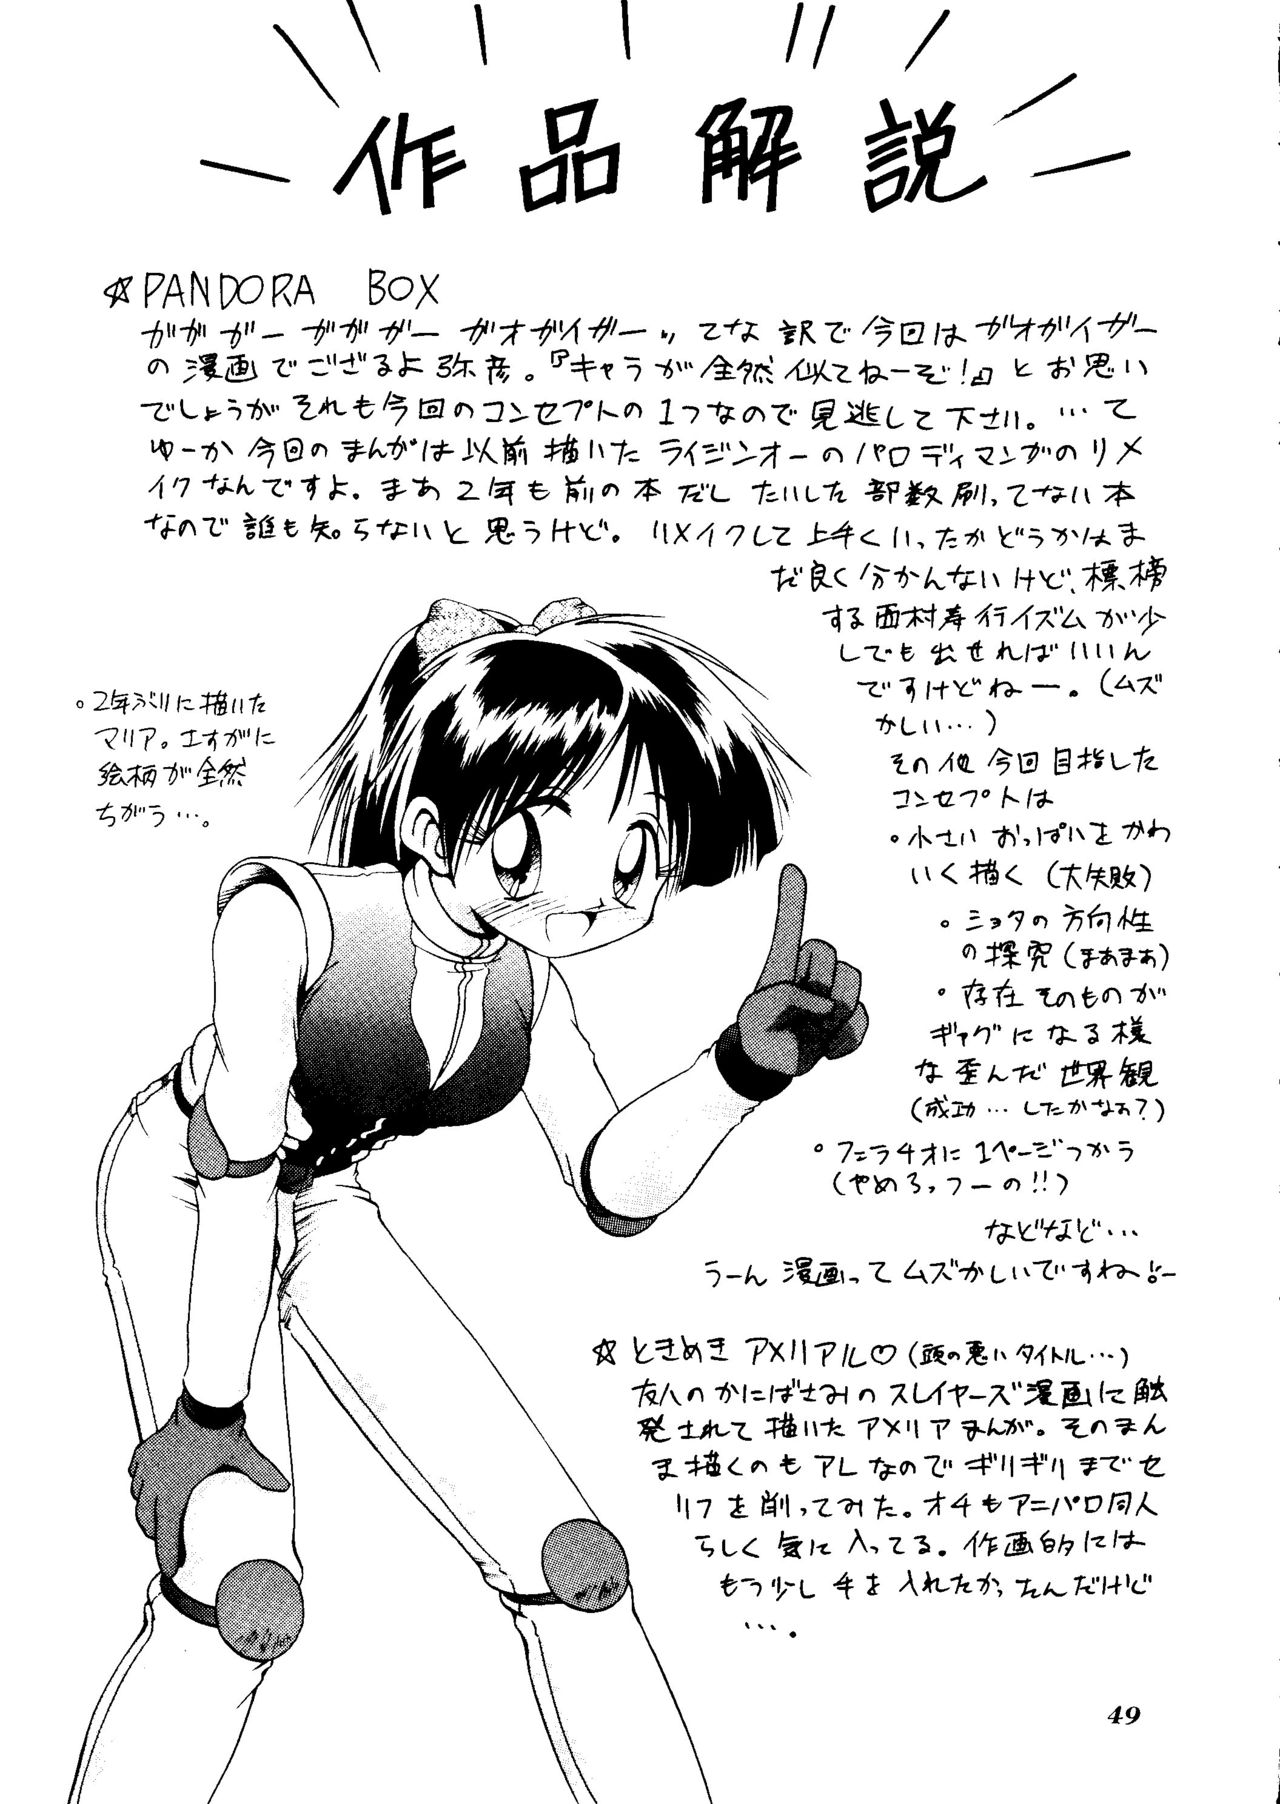 作品解説
☆PANDORA BOX
ががガーがががー ガオガイガー〟てな訳で今回はガオガイガー
の漫画でござるよ弥彦。『キャラが全然似てねーぞ!』とお思い
でしょうがそれも今回のコンセプトの1つなので見逃して下さい。…て
ゆーか今回のまんがは以前描いたライジンオーのパロディマンガのリメ
イクなんですよ。まあ2年も前の本だし たいした部数刷ってない本
なので誰も知らないと思うけど。リメイクして上手くいったかどうかはま
だ良く分かんないけど、標榜
する西村寿行イズムが少
しでも出せればいいん
ですけどねー。(ムズ
かしい…)
その他今回目指した
コンセプトは
・小さいおっぱいをかわ
いく描く(大失敗)
・ショタの方向性
の探究(まあまあ)
・存在そのものが
ギャグになる様
な歪んだ世界観
(成功…したかなぁ?)
・フェラチオに1ページつかう
(やめろっつーの!!)
などなど…
うーん漫画ってムズかしいですね!
。2年ぶりに描いた
マリア。さすがに
絵柄が全然
ちがう…。
☆ときめきアメリアル♡(頭の悪いタイトル…)
友人のかにばさみのスレイヤーズ漫画に触
発されて描いたアメリアまんが。そのまん
ま描くのもアレなのでギリギリまでセ
リフを削ってみた。オチもアニパロ同人
らしく気に入ってる。作画的には
もう少し手を入れたかったんだけど
…。
49